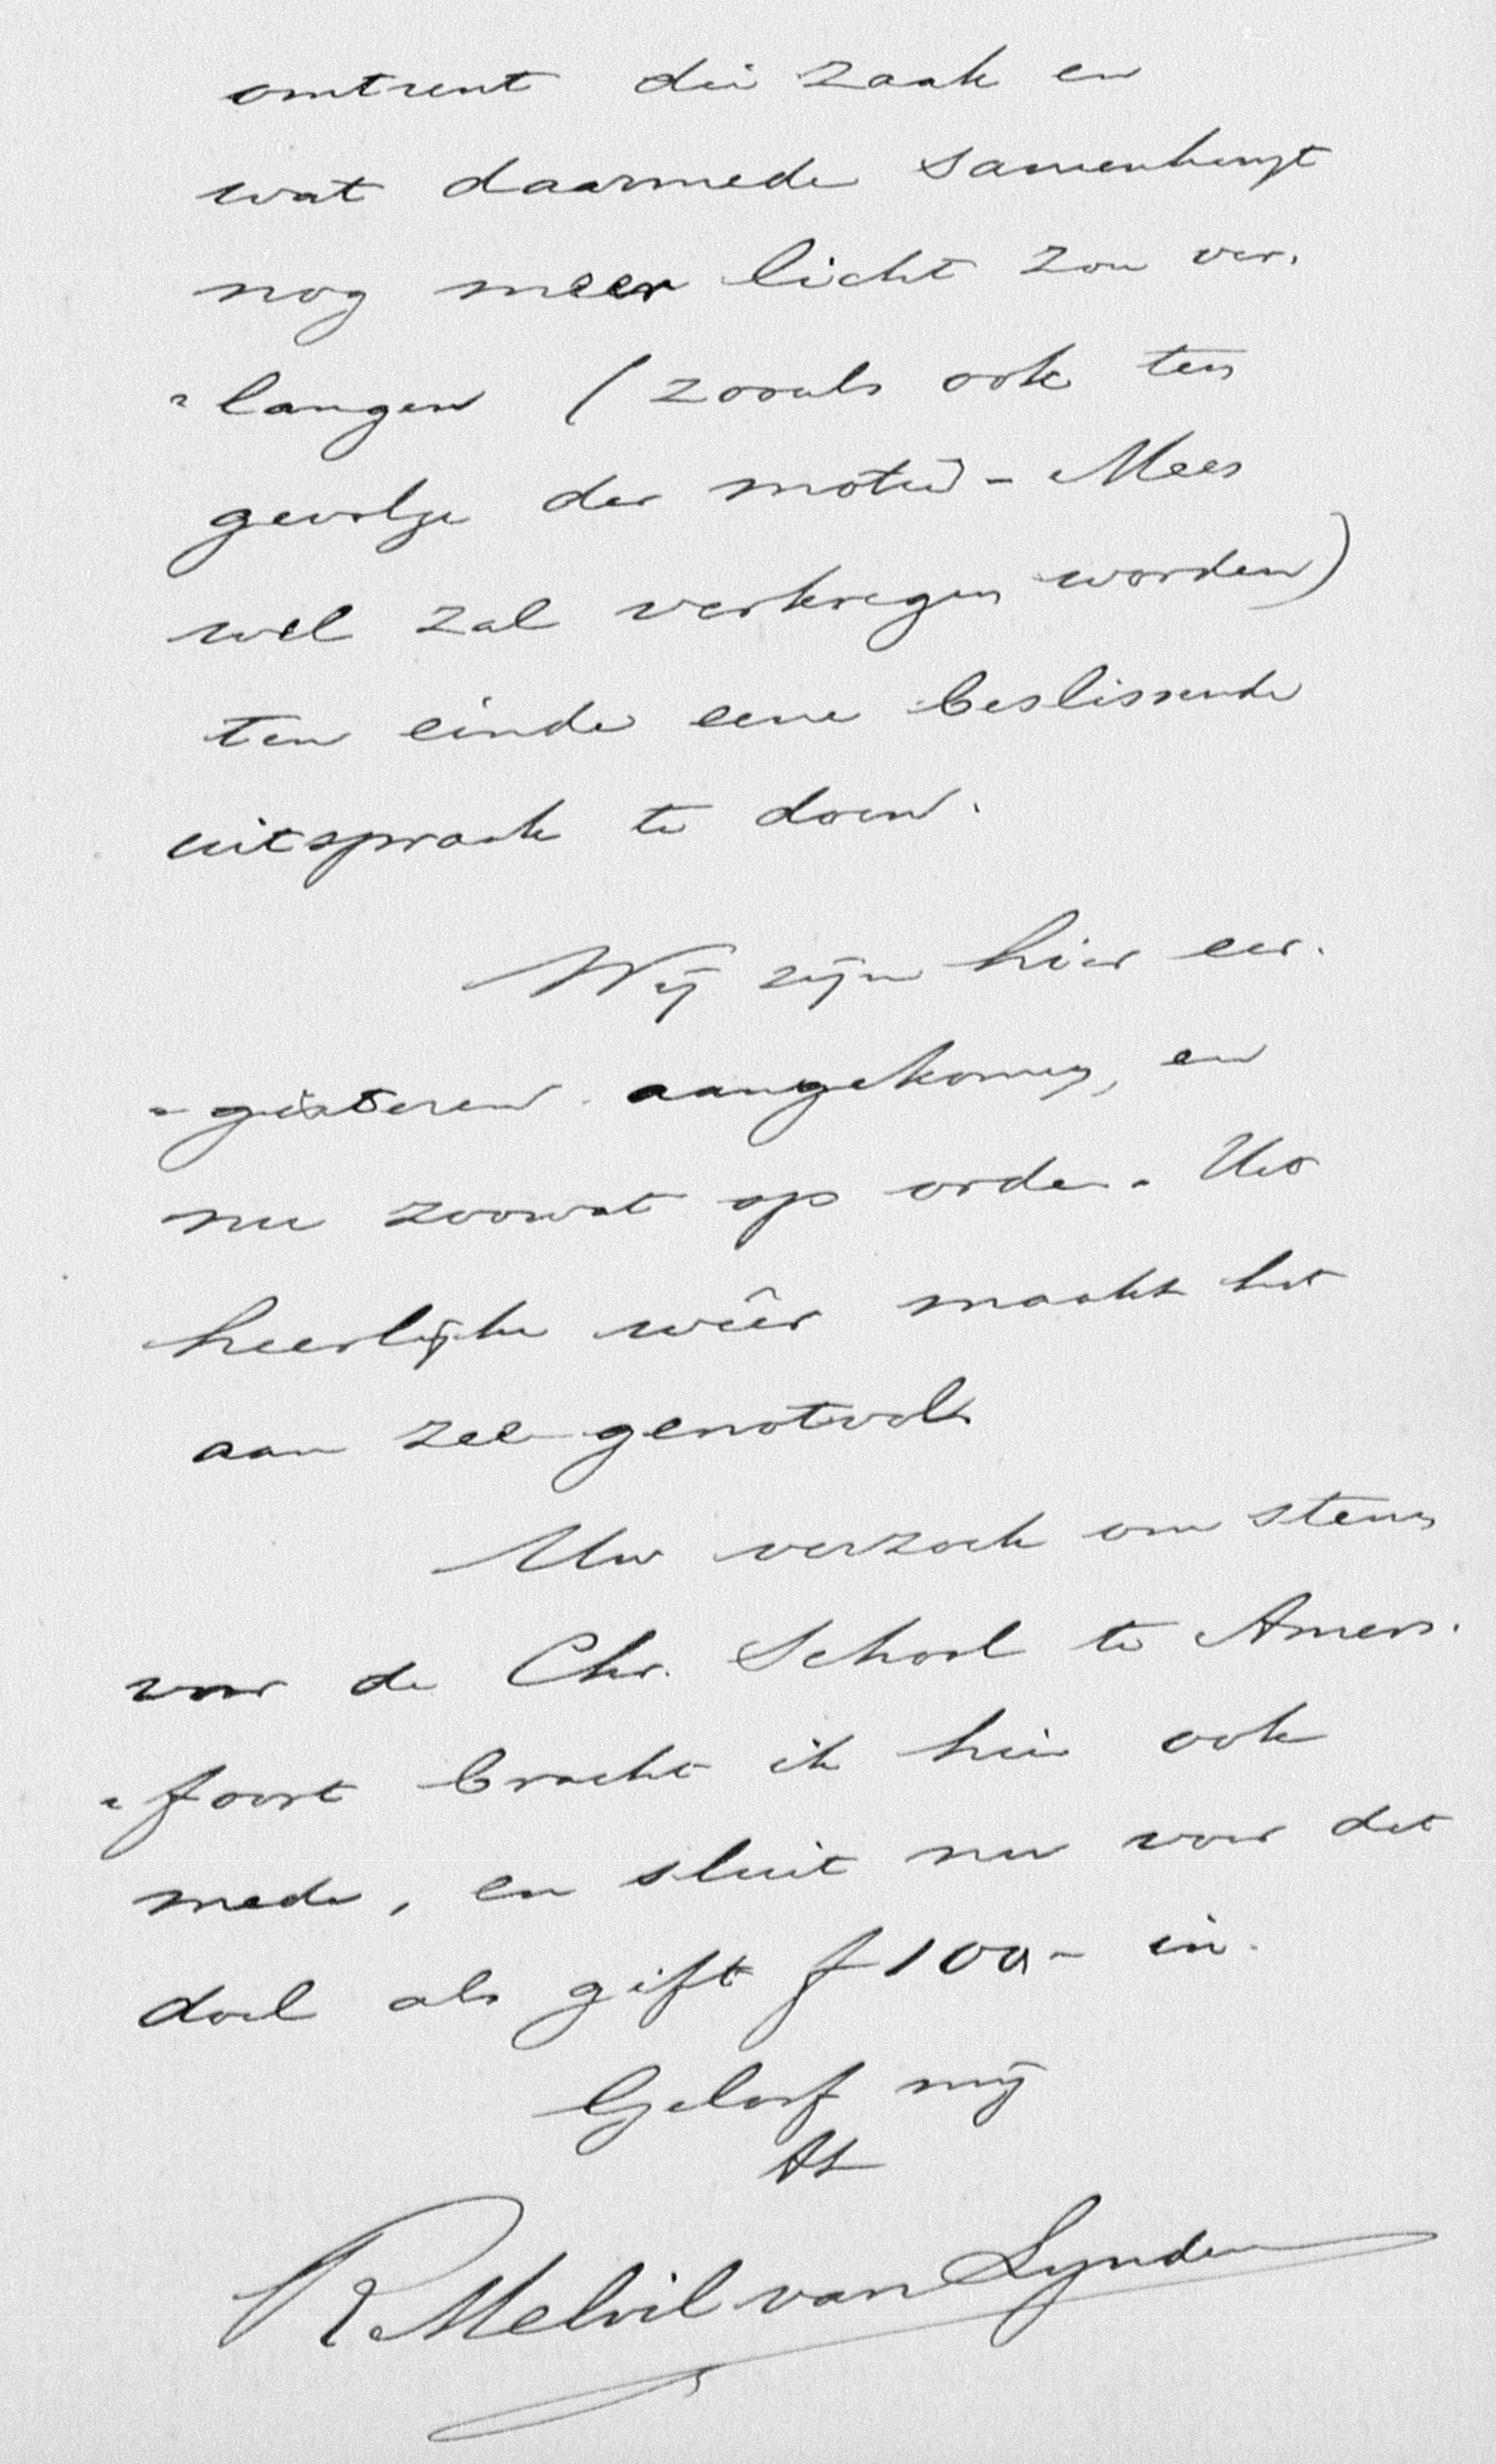 omtrent die zaak en
wat daarmede samenhangt
nog meer licht zou ver-
"langen (zooals ook ten
gevolge der motie - Mees
wel zal verkregen worden)
ten einde eene beslissende
uitspraak te doen.
Wij zijn hier eer-
"gisteren aangekomen, en
nu zoowat op orde. Het
heerlijke weêr maakt het
aan zee genotvol.
Uw verzoek om steun
voor de Chr. School te Amers-
"foort bracht ik hier ook
mede, en sluit nu voor dat
doel als gift f 100.- in.
Geloof mij
tt
R Melvil van Lynden